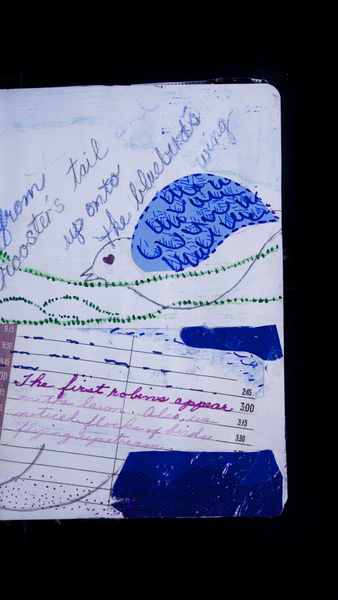 from
rooster's tail and
up onto
the bluebird's
wing
9.15
9.30
9.45
2:45
The first robins appear 3:00
on the lawn. Also, we 3:15
noticed flocks of birds 3:30
flying upstream.